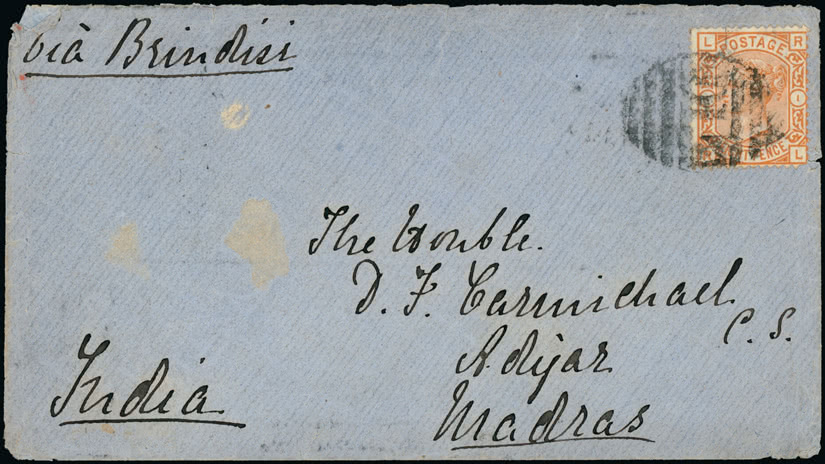 via Brindisi
L POSTAGE R
The Honble.
D. F. Carmichael
C. S.
Adyar
Madras
India